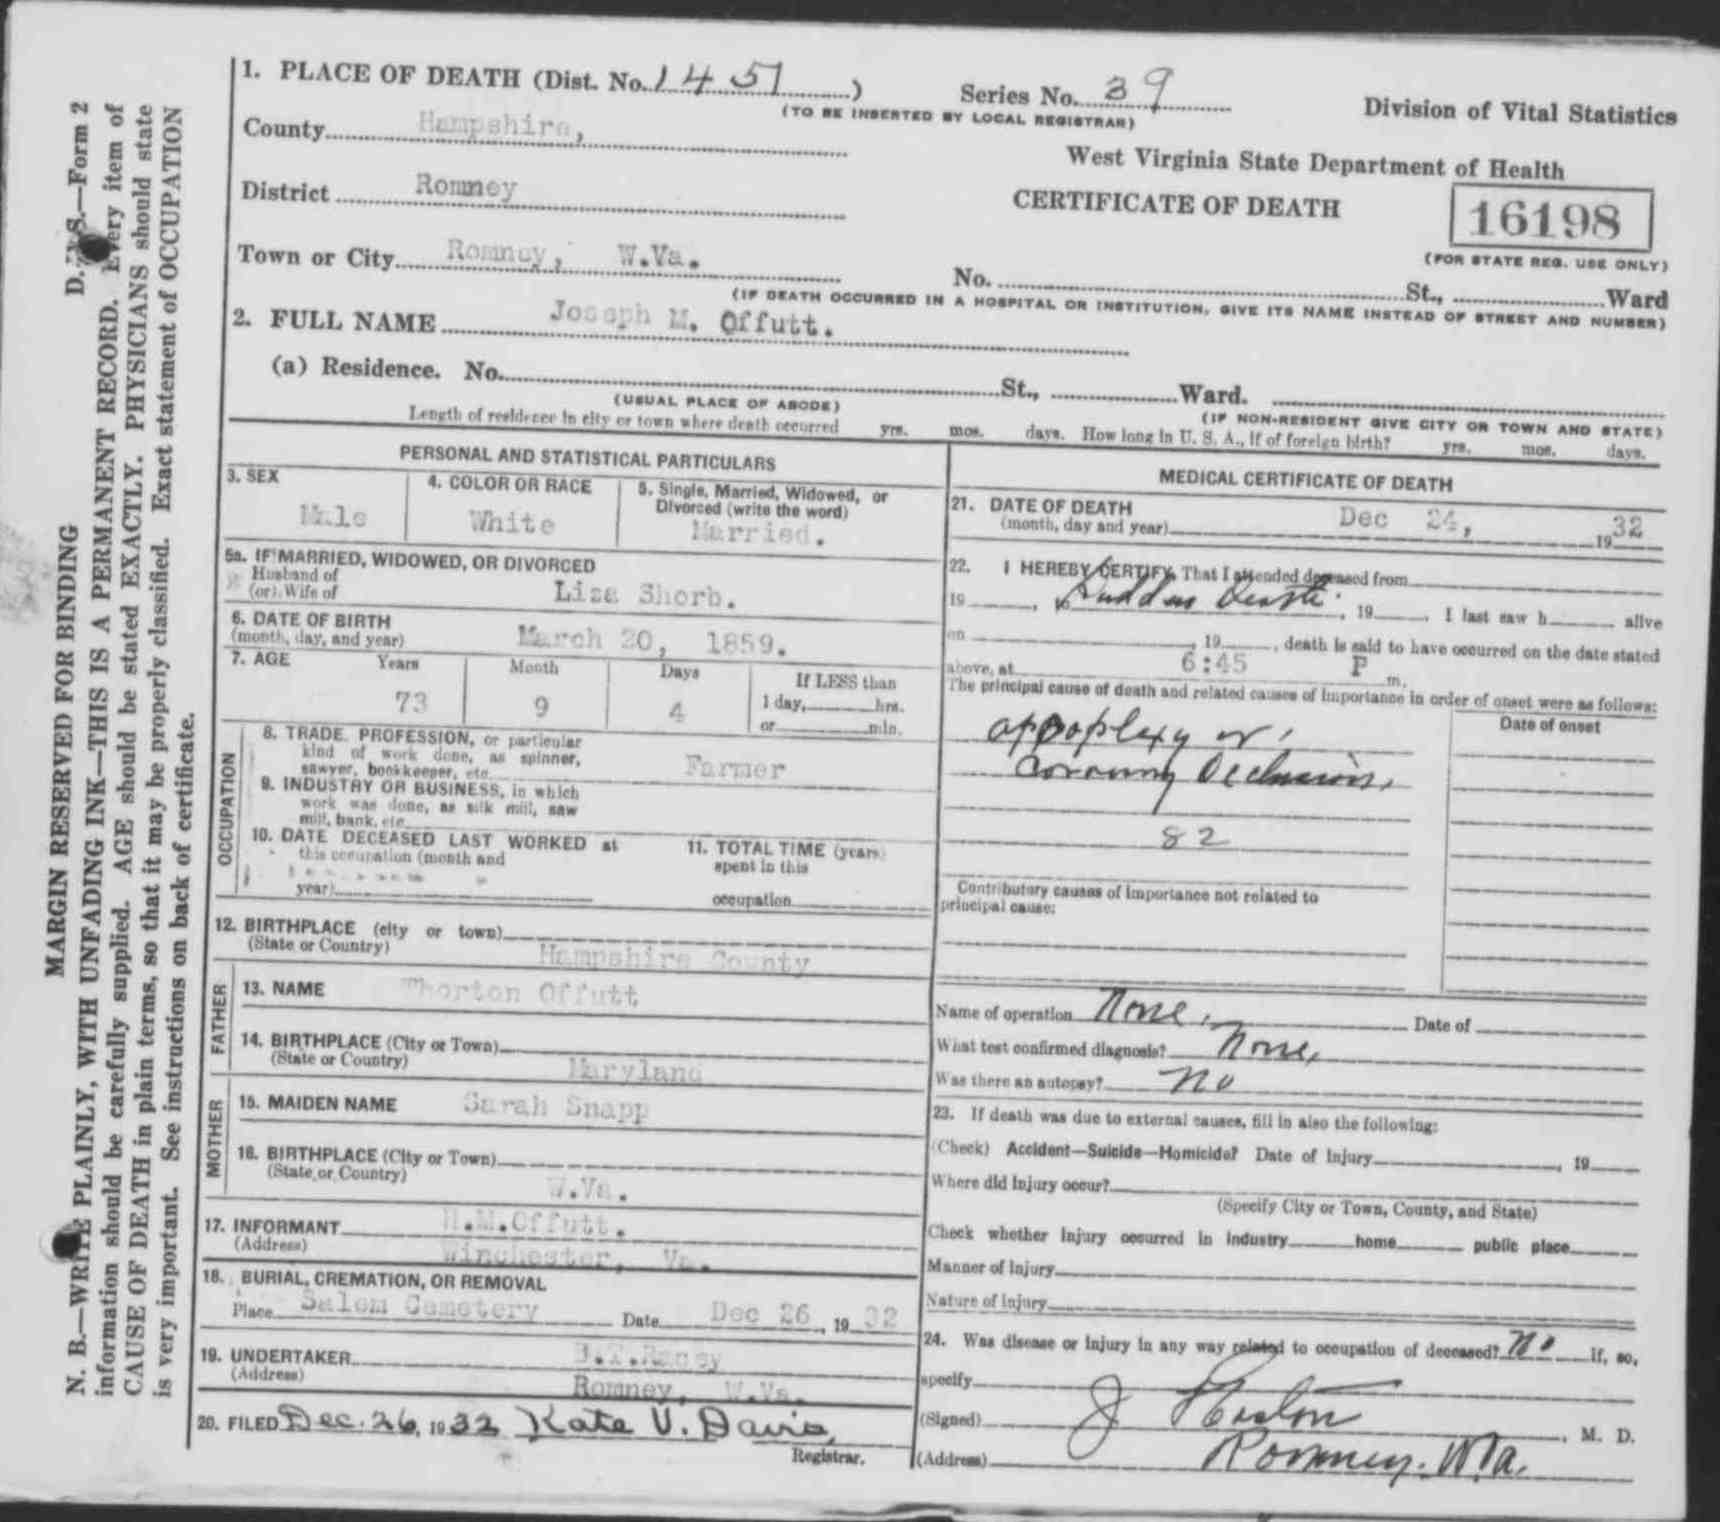 MARGIN RESERVED FOR BINDING
N. B.—WRITE PLAINLY, WITH UNFADING INK—THIS IS A PERMANENT RECORD. Every item of
information should be carefully supplied. AGE should be stated EXACTLY. PHYSICIANS should state
CAUSE OF DEATH in plain terms, so that it may be properly classified. Exact statement of OCCUPATION
is very important. See instructions on back of certificate.
—Form 2
1. PLACE OF DEATH (Dist. No. 1451)
Series No. 39
(TO BE INSERTED BY LOCAL REGISTRAR)
Division of Vital Statistics
County Hampshire,
West Virginia State Department of Health
District Romney
CERTIFICATE OF DEATH
16198
(FOR STATE REG. USE ONLY)
Town or City Romney, W.Va.
No. St., Ward
(IF DEATH OCCURRED IN A HOSPITAL OR INSTITUTION, GIVE ITS NAME INSTEAD OF STREET AND NUMBER)
2. FULL NAME Joseph M. Offutt.
(a) Residence. No. St., Ward.
(USUAL PLACE OF ABODE)
(IF NON-RESIDENT GIVE CITY OR TOWN AND STATE)
Length of residence in city or town where death occurred yrs. mos. days. How long in U. S. A., if of foreign birth? yrs. mos. days.
PERSONAL AND STATISTICAL PARTICULARS
3. SEX
Male
4. COLOR OR RACE
White
5. Single, Married, Widowed, or
Divorced (write the word)
Married.
5a. IF MARRIED, WIDOWED, OR DIVORCED
Husband of
(or) Wife of Liza Shorb.
6. DATE OF BIRTH
(month, day, and year) March 20, 1859.
7. AGE Years Month Days
73 9 4
If LESS than
1 day, hrs.
or min.
OCCUPATION
8. TRADE, PROFESSION, or particular
kind of work done, as spinner,
sawyer, bookkeeper, etc. Farmer
9. INDUSTRY OR BUSINESS, in which
work was done, as silk mill, saw
mill, bank, etc.
10. DATE DECEASED LAST WORKED at
this occupation (month and
year)
11. TOTAL TIME (years)
spent in this
occupation
12. BIRTHPLACE (city or town)
(State or Country) Hampshire County
FATHER
13. NAME Thorton Offutt
14. BIRTHPLACE (City or Town)
(State or Country) Maryland
MOTHER
15. MAIDEN NAME Sarah Snapp
16. BIRTHPLACE (City or Town)
(State or Country) W.Va.
17. INFORMANT H.M.Offutt.
(Address) Winchester, Va.
18. BURIAL, CREMATION, OR REMOVAL
Place Salem Cemetery Date Dec 26, 1932
19. UNDERTAKER
(Address) Romney, W.Va.
20. FILED Dec. 26, 1932 Kate V. Davis,
Registrar.
MEDICAL CERTIFICATE OF DEATH
21. DATE OF DEATH
(month, day and year) Dec 24, 1932
22. I HEREBY CERTIFY, That I attended deceased from
19 , to Sudden Death , 19 . I last saw h alive
on , 19 , death is said to have occurred on the date stated
above, at 6:45 P m.
The principal cause of death and related causes of importance in order of onset were as follows:
Date of onset
appoplexy or
coronary Occlusion.
82
Contributory causes of importance not related to
principal cause:
Name of operation None. Date of
What test confirmed diagnosis? None.
Was there an autopsy? No
23. If death was due to external causes, fill in also the following:
(Check) Accident—Suicide—Homicide? Date of Injury , 19
Where did injury occur?
(Specify City or Town, County, and State)
Check whether injury occurred in industry home public place
Manner of injury
Nature of injury
24. Was disease or injury in any way related to occupation of deceased? No If, so,
specify
(Signed) J , M. D.
(Address) Romney. W.Va.